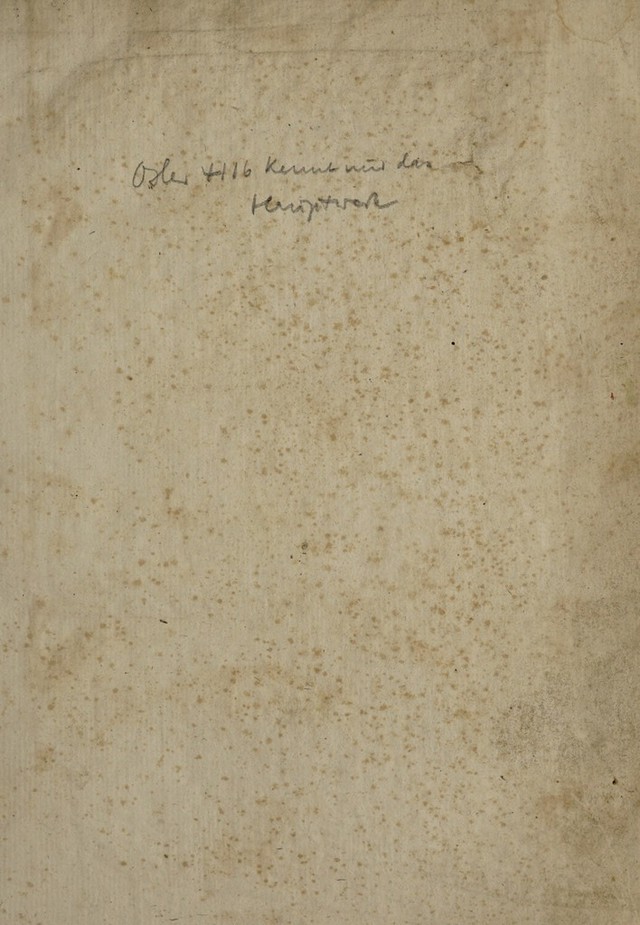 Osler 4116 kennt nur das
Hauptwerk